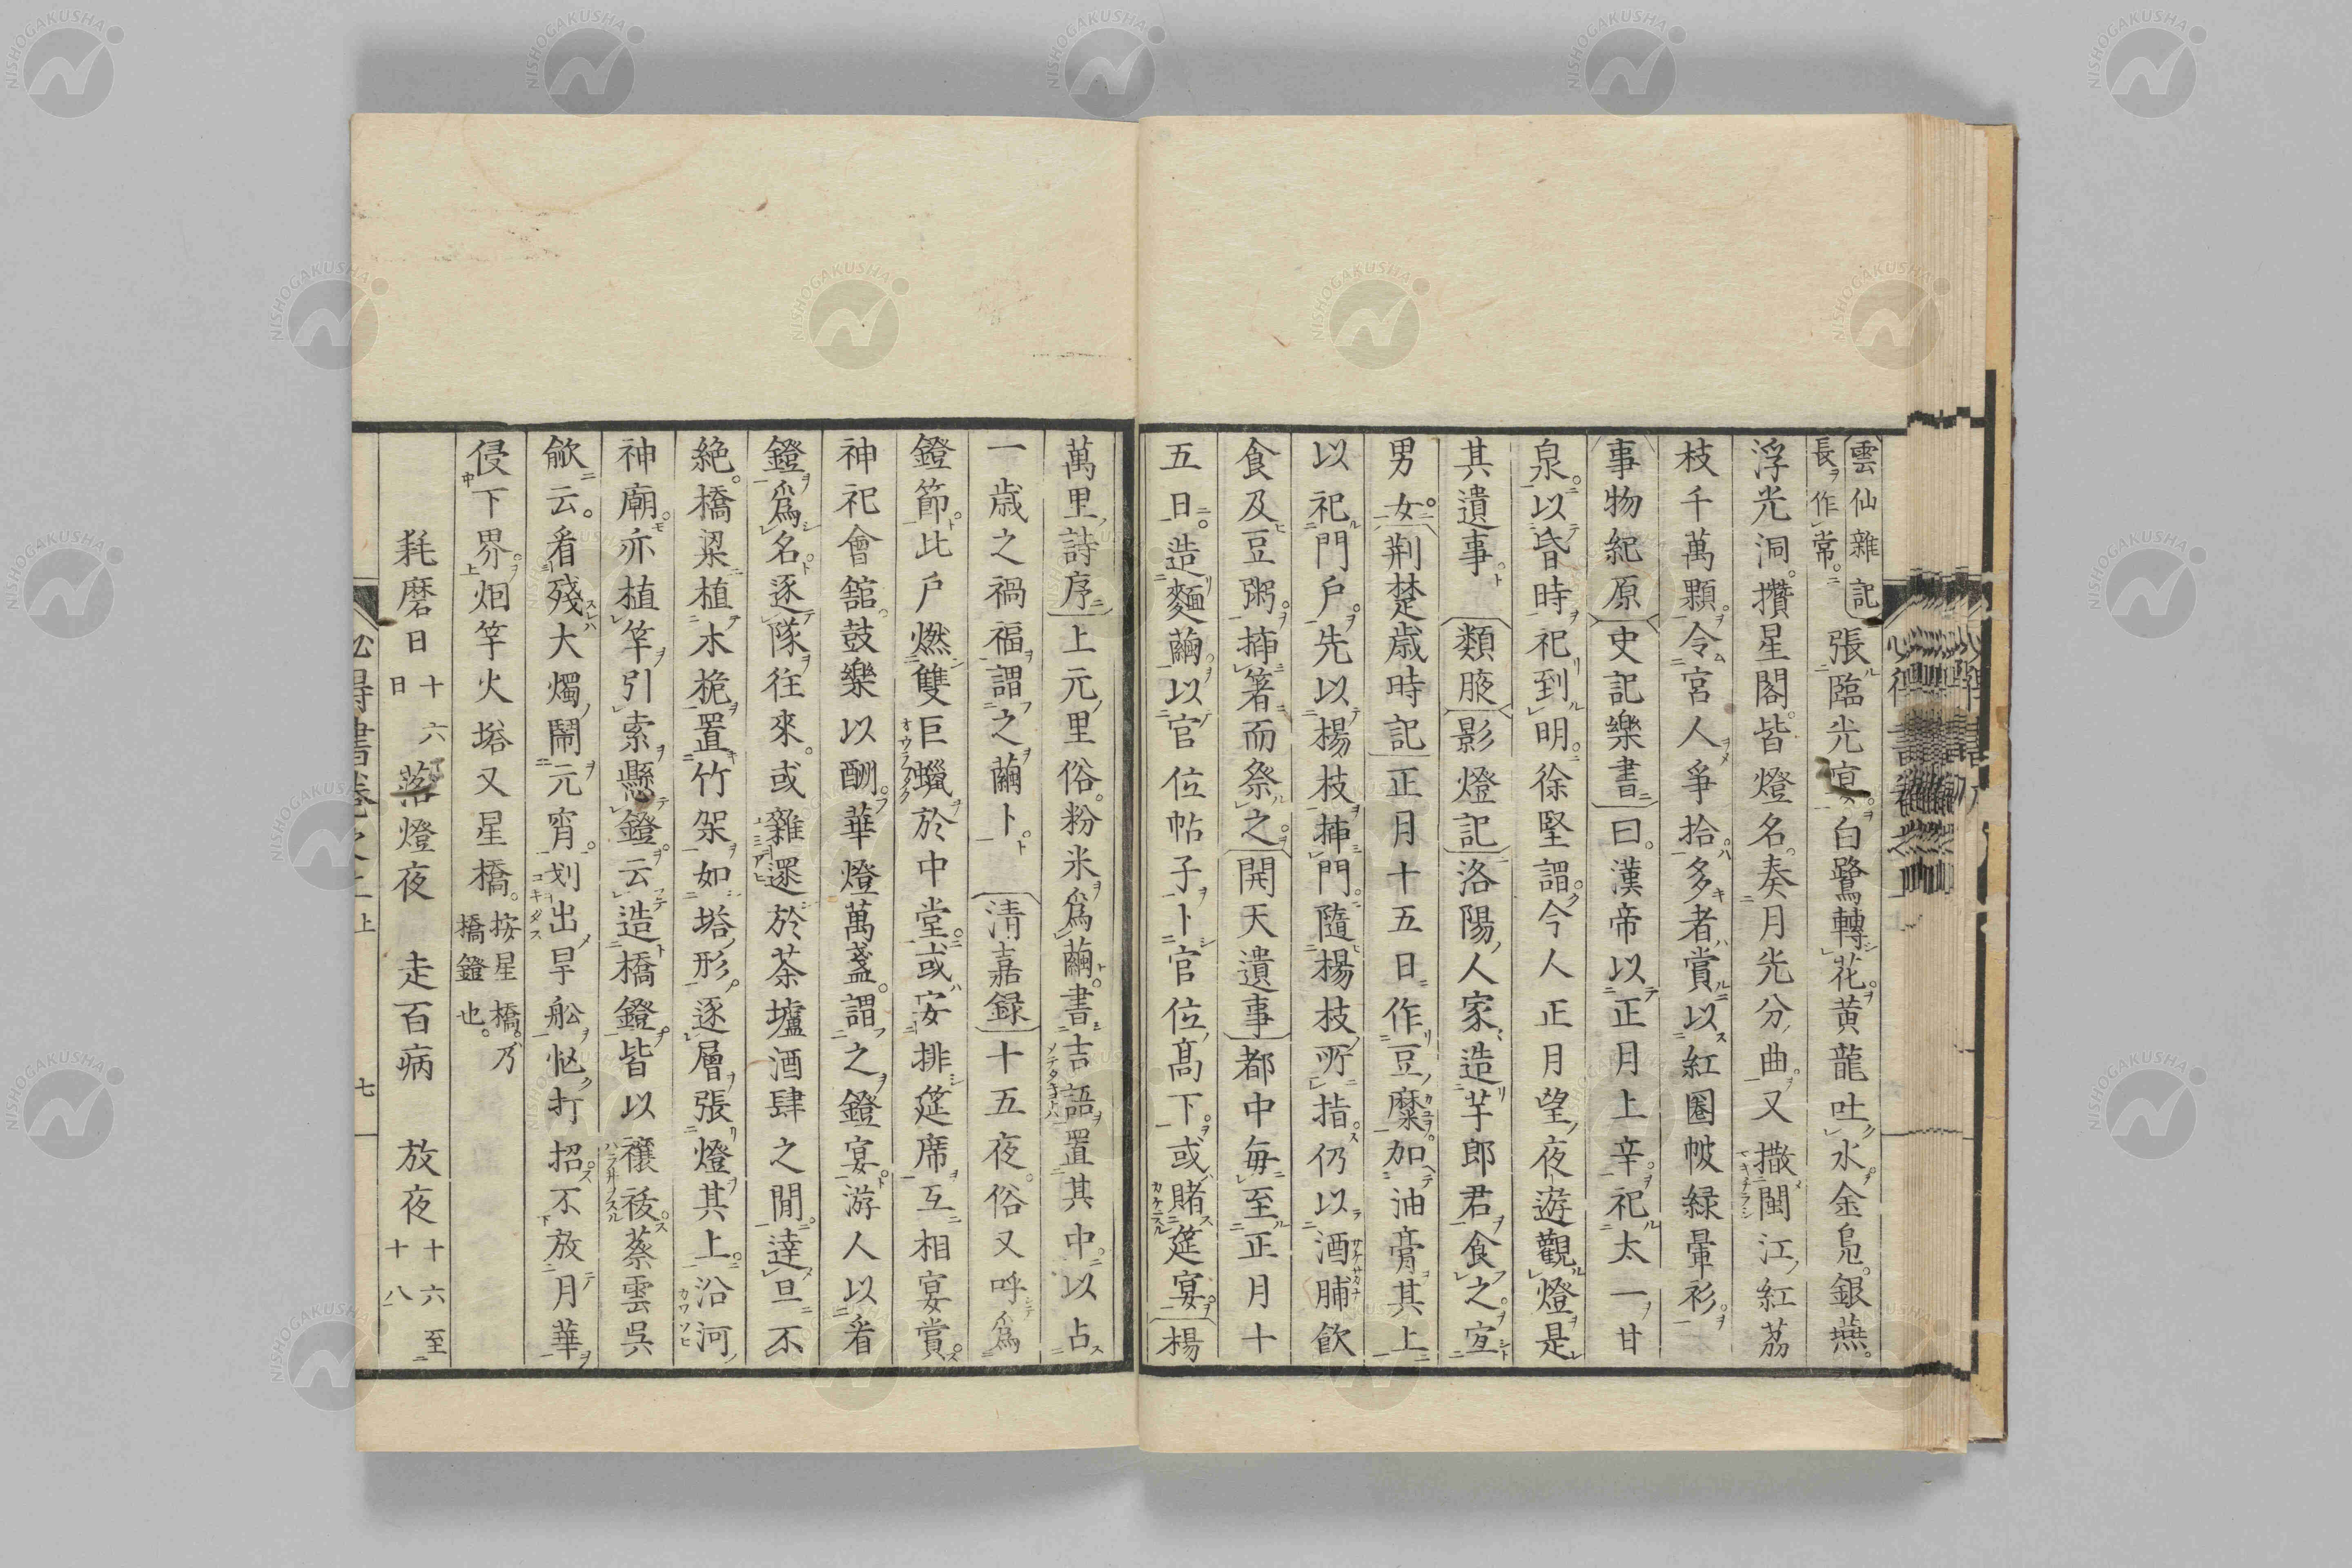 雲仙雜記
長作常。
張臨光宴。白鷺轉花。黄龍吐水。金鳧。銀燕。
浮光洞。攢星閣。皆燈名。奏月光分曲。又撒閩江紅荔
枝千萬顆。令宮人爭拾。多者賞以紅圈帔緑暈衫。
事物紀原 史記樂書曰。漢帝以正月上辛。祀太一甘
泉。以昏時祀到明。徐堅謂。今人正月望夜遊觀燈是
其遺事 類腋 影燈記 洛陽人家造芋郎君食之。宜
男女。荆楚歳時記 正月十五日作豆糜。加油膏其上
以祀門戸。先以楊枝揷門。隨楊枝所指。仍以酒脯飲
食及豆粥。揷箸而祭之。開天遺事 都中毎至正月十
五日。造麵繭。以官位帖子卜官位高下。或賭筵宴。楊
萬里詩序 上元里俗。粉米爲繭。書吉語置其中。以占
一歳之禍福。謂之繭卜。 清嘉録 十五夜。俗又呼爲
鐙節。比戸燃雙巨蠟於中堂。或安排筵席。互相宴賞。
神祀會舘。鼓樂以酬。華燈萬盞。謂之鐙宴。游人以看
鐙爲名。逐隊往來。或雜遝於荼壚酒肆之間。達旦不
絶。橋梁植木桅。置竹架如塔形。逐層張燈其上。沿河
神廟。亦植竿引索。懸鐙。云造橋鐙。皆以禳祲。蔡雲呉
歈云。看殘大燭鬧元宵。划出旱舩忙打招。不放月華
侵下界。烟竿火塔又星橋。按星橋。乃
橋鐙也。
耗磨日十六
日 落燈夜 走百病 放夜十六至
十八
七